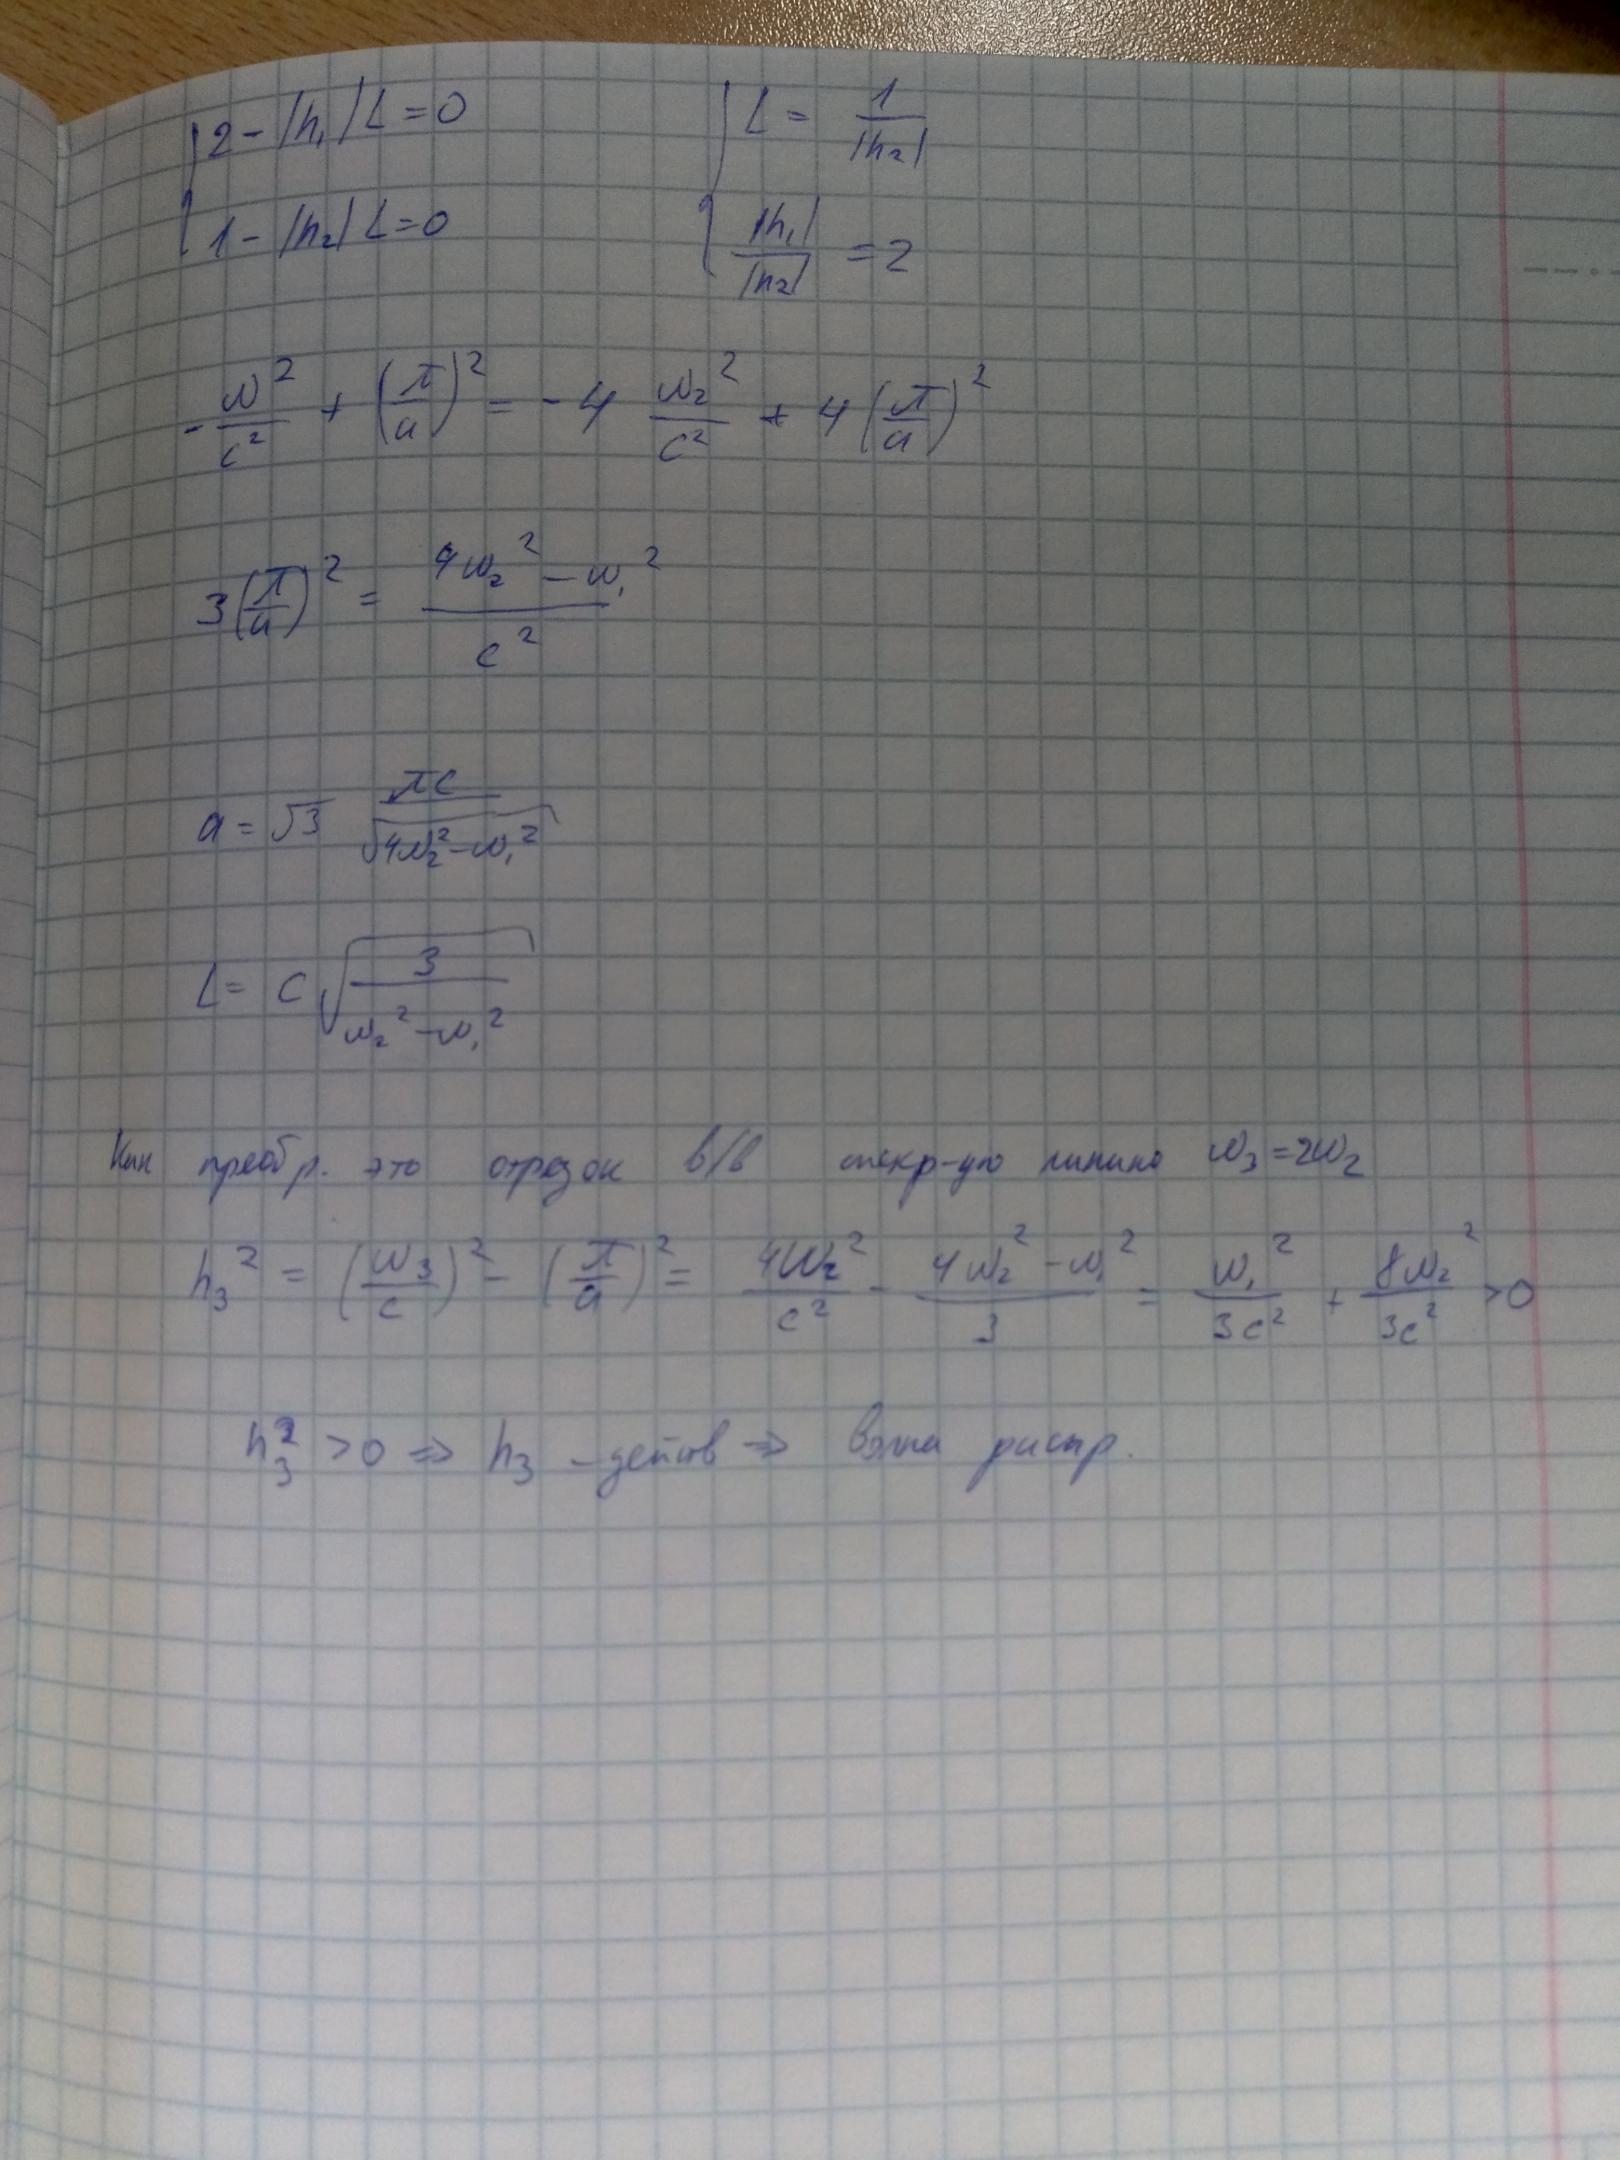 2 - |h₁| L = 0
1 - |h₂| L = 0
L = 1/|h₂|
|h₁|/|h₂| = 2
- ω²/c² + (π/a)² = - 4 ω₂²/c² + 4 (π/a)²
3(π/a)² = (4ω₂² - ω₁²)/c²
a = √3 πc/√(4ω₂² - ω₁²)
L = c √(3/(ω₂² - ω₁²))
Как преобр. это отрезок в/в спектр-ую линию ω₃ = 2ω₂
h₃² = (ω₃/c)² - (π/a)² = 4ω₂²/c² - (4ω₂² - ω₁²)/3 = ω₁²/3c² + 8ω₂²/3c² > 0
h₃² > 0 ⇒ h₃ - действ ⇒ волна распр.